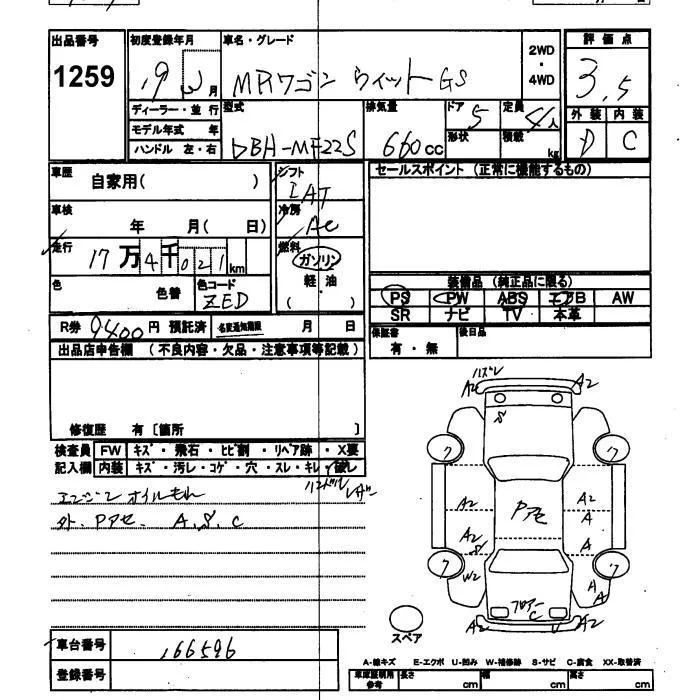 出品番号 初度登録年月 車名・グレード 2WD・4WD 評価点
1259 19 月 MRワゴン ウィット GS 3.5
ディーラー・並行 型式 排気量 ドア 5 定員 4人 外装 内装
モデル年式 年 形状 積載 D C
ハンドル 左・右 DBH-MF22S 660cc kg
車歴 自家用( ) シフト IAT セールスポイント (正常に機能するもの)
車検 年 月( 日) 冷房 AC
走行 17万4千021km 燃料 ガソリン
軽・油
( )
色 色替 色コード ZED
装備品 (純正品に限る)
PS PW ABS エアB AW
SR ナビ TV 本革
R券 9400円 預託済 名変通知期限 月 日
保証書 有・無 後日品
出品店申告欄 (不良内容・欠品・注意事項等記載)
修復歴 有〔箇所 〕
検査員 FW キズ・飛石・ヒビ割・リペア跡・X要
記入欄 内装 キズ・汚レ・コゲ・穴・スレ・キレ・破レ
ハンドル
エンジン オイルもれ
外、Pアセ、 A、S、C
ハズレ
A2 A2
S
ワ ワ
A2 A2
A
Pアセ
A2 A
S
ワ ワ
W2 A
A
フロアー
C
A2 U A2
スペア
車台番号 166596
登録番号
A-線キズ E-エクボ U-凹み W-補修跡 S-サビ C-腐食 XX-取替済
車庫証明用参考 長さ cm 幅 cm 高さ cm